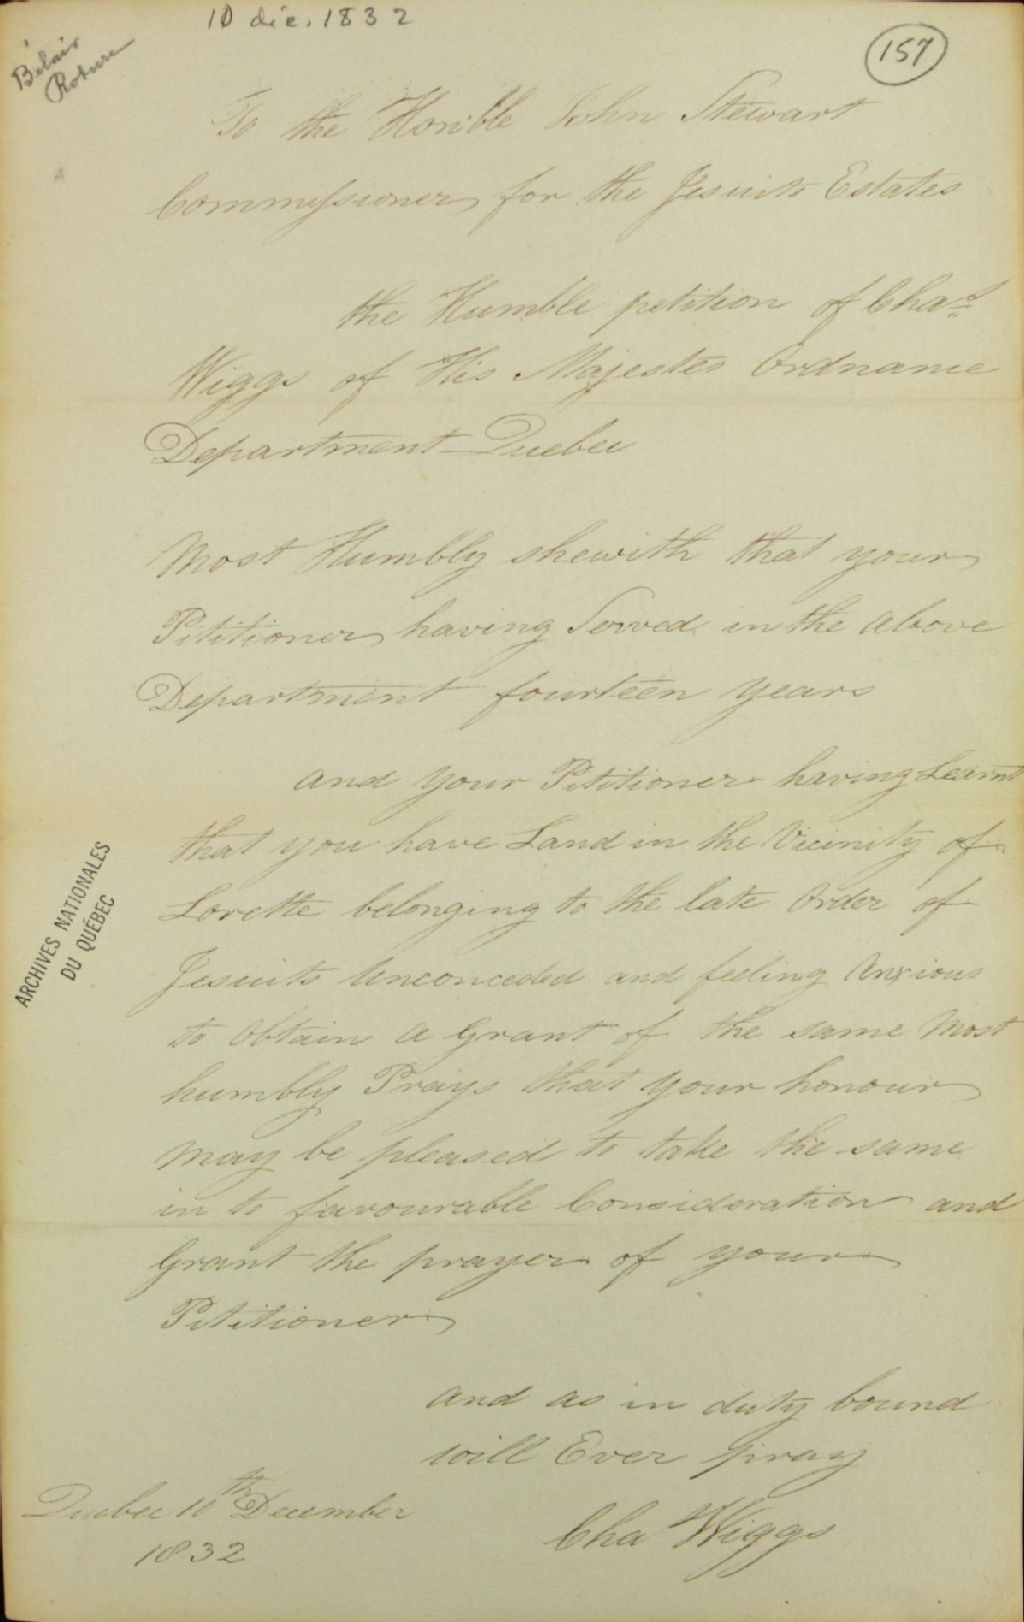 10 déc. 1832
Bélair
Roture
157
To the Honble John Stewart
Commissioner for the Jesuits Estates
the Humble petition of Chas
Wiggs of His Majestes Ordnance
Department Quebec
Most Humbly shewith that your
Petitioner having Served in the above
Department fourteen years
and your Petitioner having Learnt
that you have Land in the Vicinity of
Lorette belonging to the late Order of
Jesuits Unconceded and feeling Anxious
to Obtain a Grant of the same Most
humbly Prays that your honour
may be pleased to take the same
in to favourable Consideration and
Grant the prayer of your
Petitioner
and as in duty bound
will Ever pray
Quebec 10th December
1832
Cha Wiggs
ARCHIVES NATIONALES
DU QUÉBEC